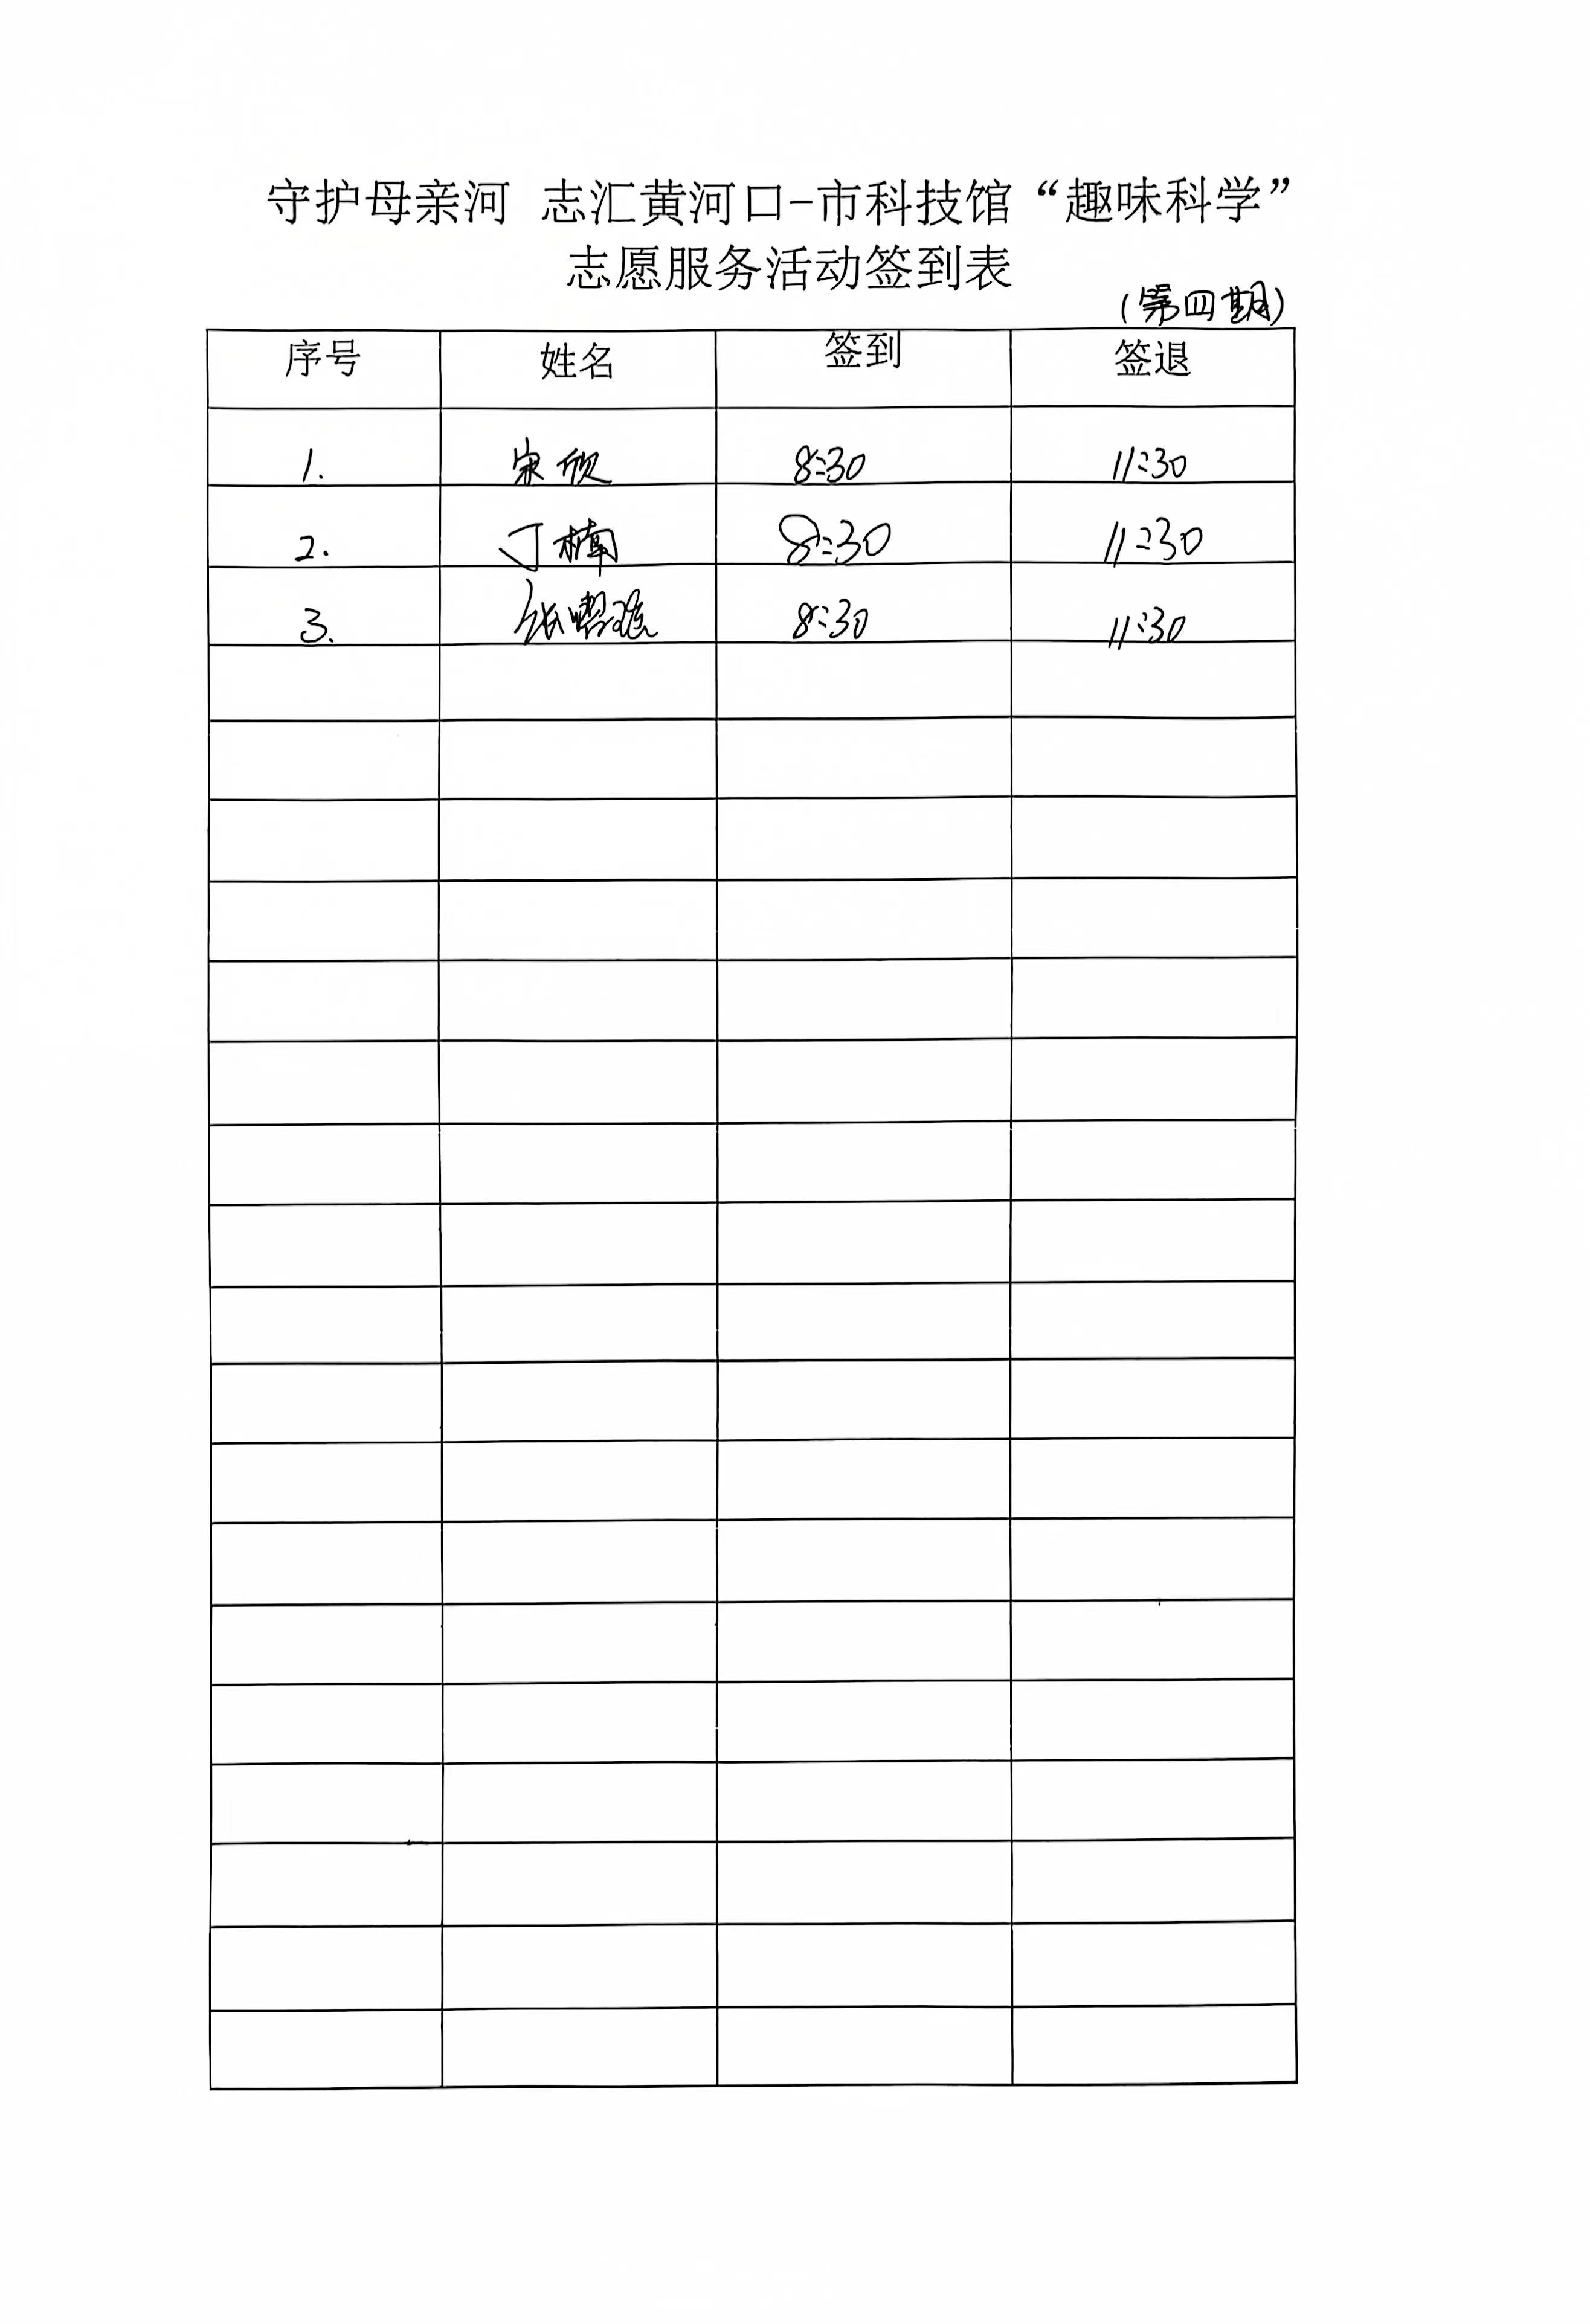 守护母亲河 志汇黄河口-市科技馆“趣味科学”
志愿服务活动签到表
(第四期)
序号 姓名 签到 签退
1. 宋欣 8:30 11:30
2. 丁楠 8:30 11:30
3. 张 8:30 11:30